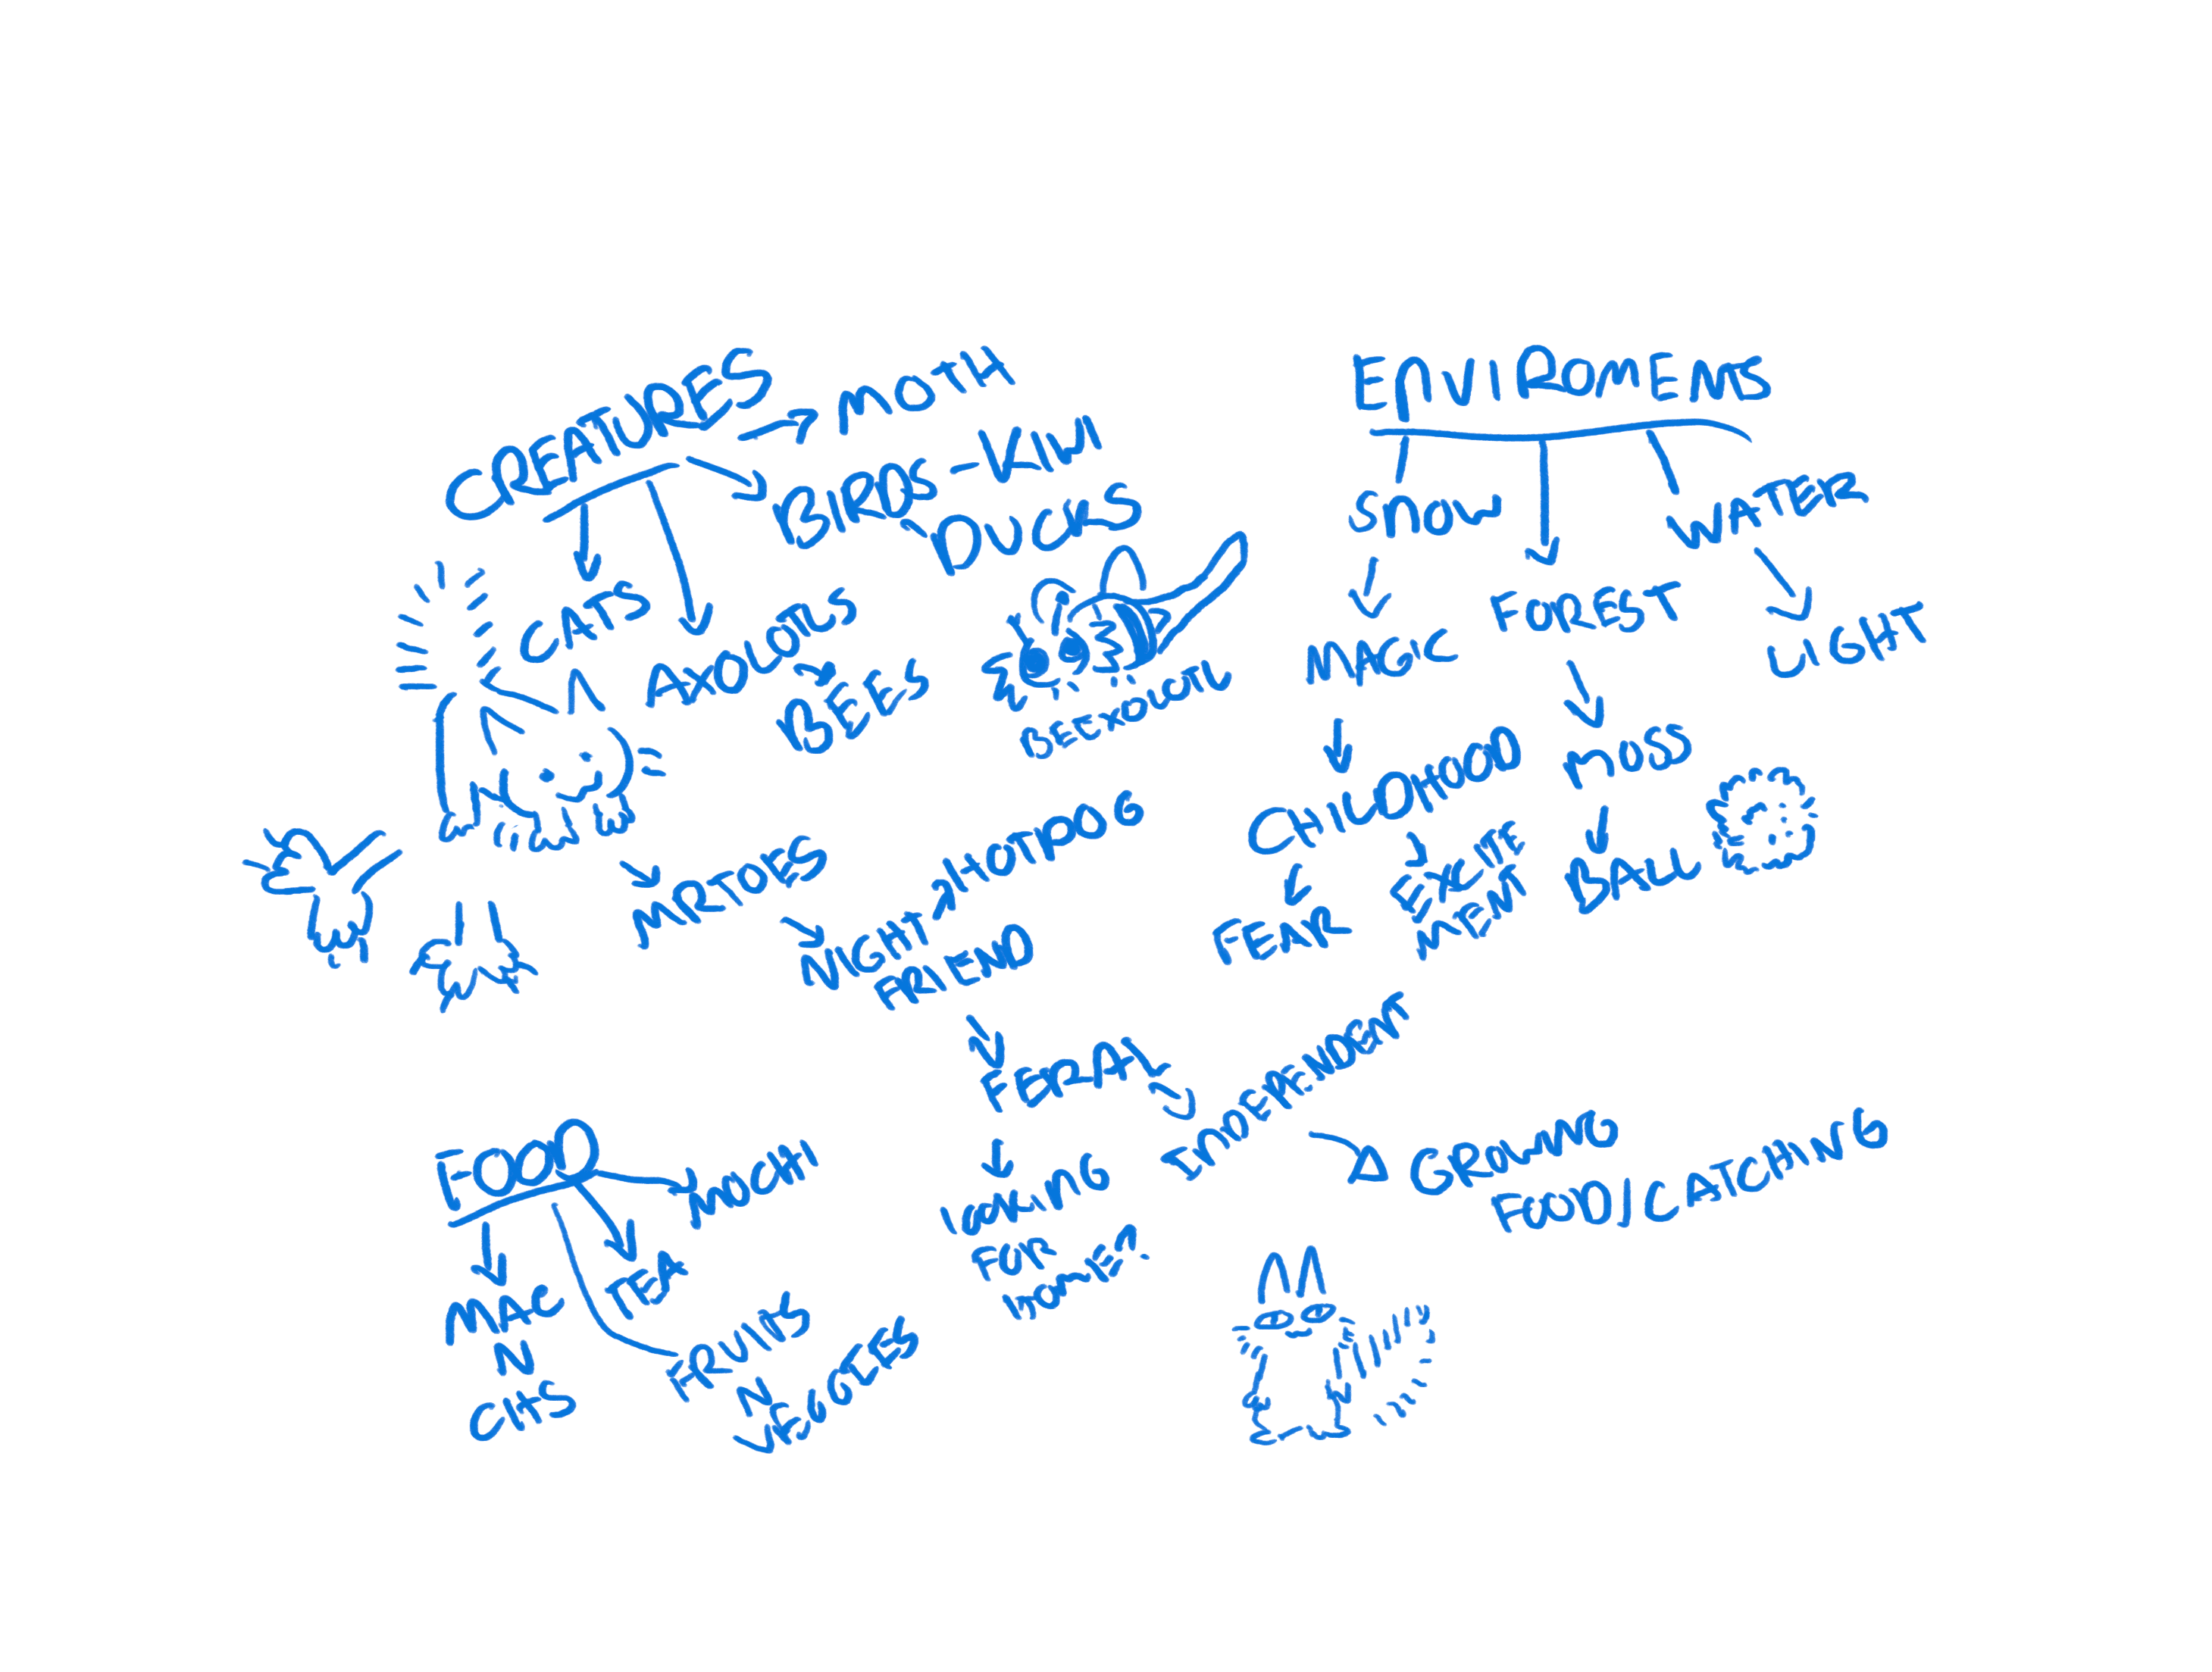 CREATURES
MOTH
BIRDS-KIWI
DUCKS
CATS
AXOLOTLS
BEES
BEEXOLOTL
MRTOES
NIGHT
FRIEND
AXOTDOG
FERAL
LOOKING
FOR
INDEPENDENT
GROWING
FOOD/CATCHING
ENVIROMENTS
SNOW
FOREST
WATER
MAGIC
LIGHT
MOSS
BALL
CHILDHOOD
FEAR
EXCITE
MENT
FOOD
MOCHI
TEA
MAC
N
CHS
FRUITS
N
VEGGIES